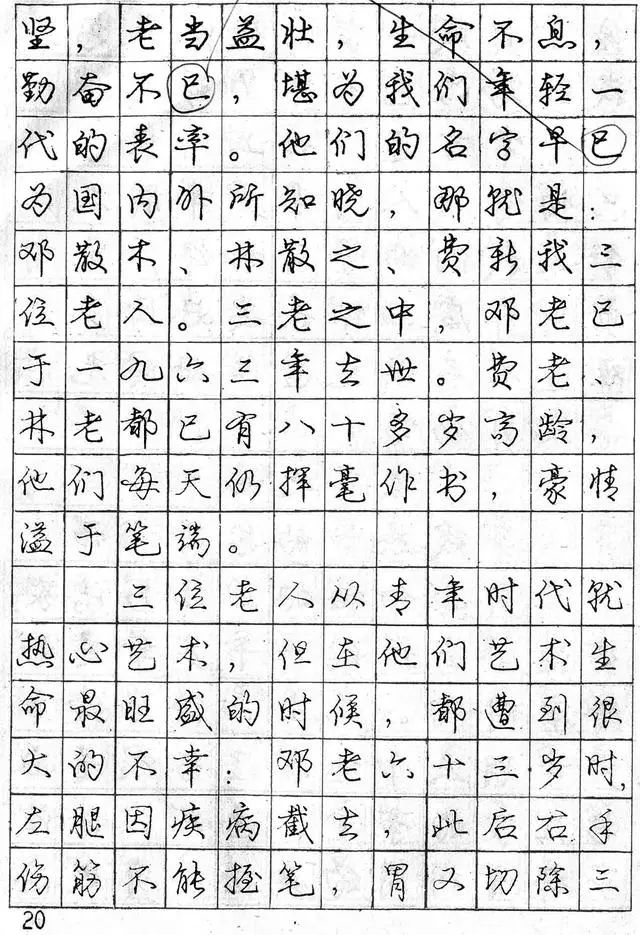 坚，老当益壮，生命不息，
勤奋不已，堪为我们年轻一
代的表率。他们的名字早已
为国内外所知晓，那就是：
邓散木、林散之、费新我三
位老人。三老之中，邓老已
于一九六三年去世。费老、
林老都已有八十多岁高龄，
他们每天仍挥毫作书，豪情
溢于笔端。
三位老人从青年时代就
热心艺术，但在他们艺术生
命最旺盛的时候，都遭到很
大的不幸：邓老六十三岁时，
左腿因疾病截去，此后右手
伤筋不能握笔，胃又切除三
20